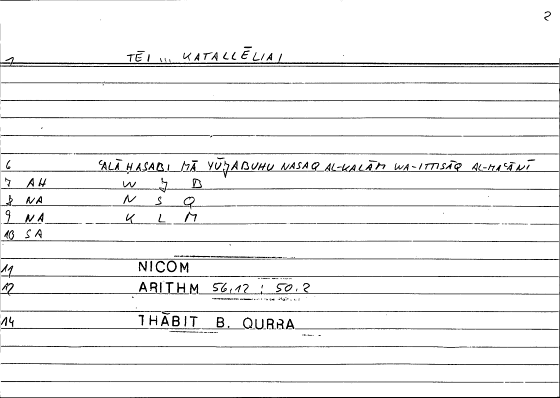 2
1 TĒI ... KATALLĒLIAI
6 ʿALĀ ḤASABI MĀ YŪǦABUHU NASAQ AL-KALĀM WA-ITTISĀQ AL-MAʿĀNĪ
7 AH W J B
8 NA N S Q
9 NA K L M
10 SA
11 NICOM
12 ARITHM 56.12 : 50.2
14 THĀBIT B. QURRA